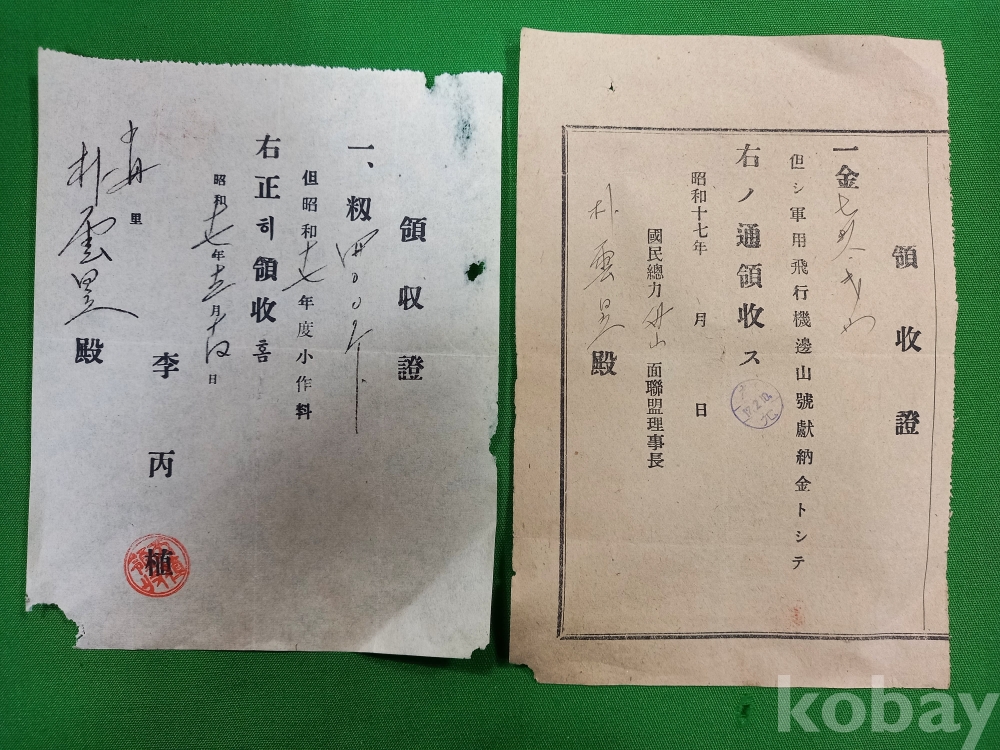 領収證
一、籾
但昭和十七年度小作料
右正히領收홈
昭和十七年 月 日
李丙植
里
朴雲
殿
領收證
一金七
但シ軍用飛行機邊山號獻納金トシテ
右ノ通領收ス
昭和十七年 月 日
國民總力 山面聯盟理事長
朴雲
殿
kobay